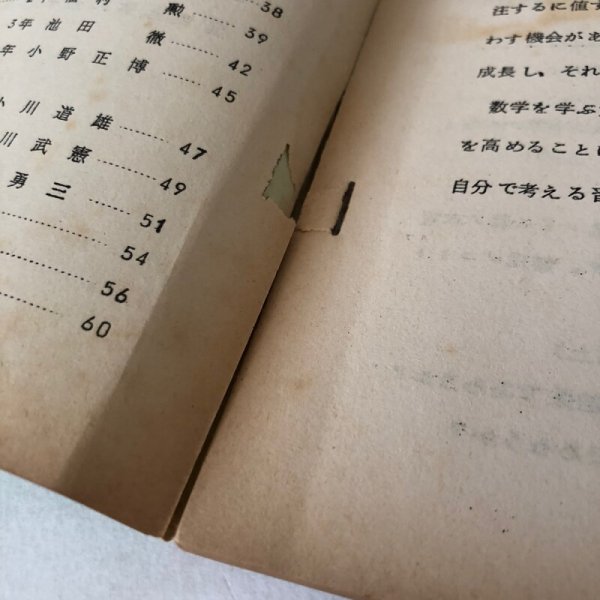 勲 38
3年 池田 徹 39
年 小野正博 42
45
小川道雄 47
川武憲 49
勇三 51
54
56
60
注するに値す
わす機会があ
成長し、それ
数学を学ぶ
を高めることに
自分で考える習